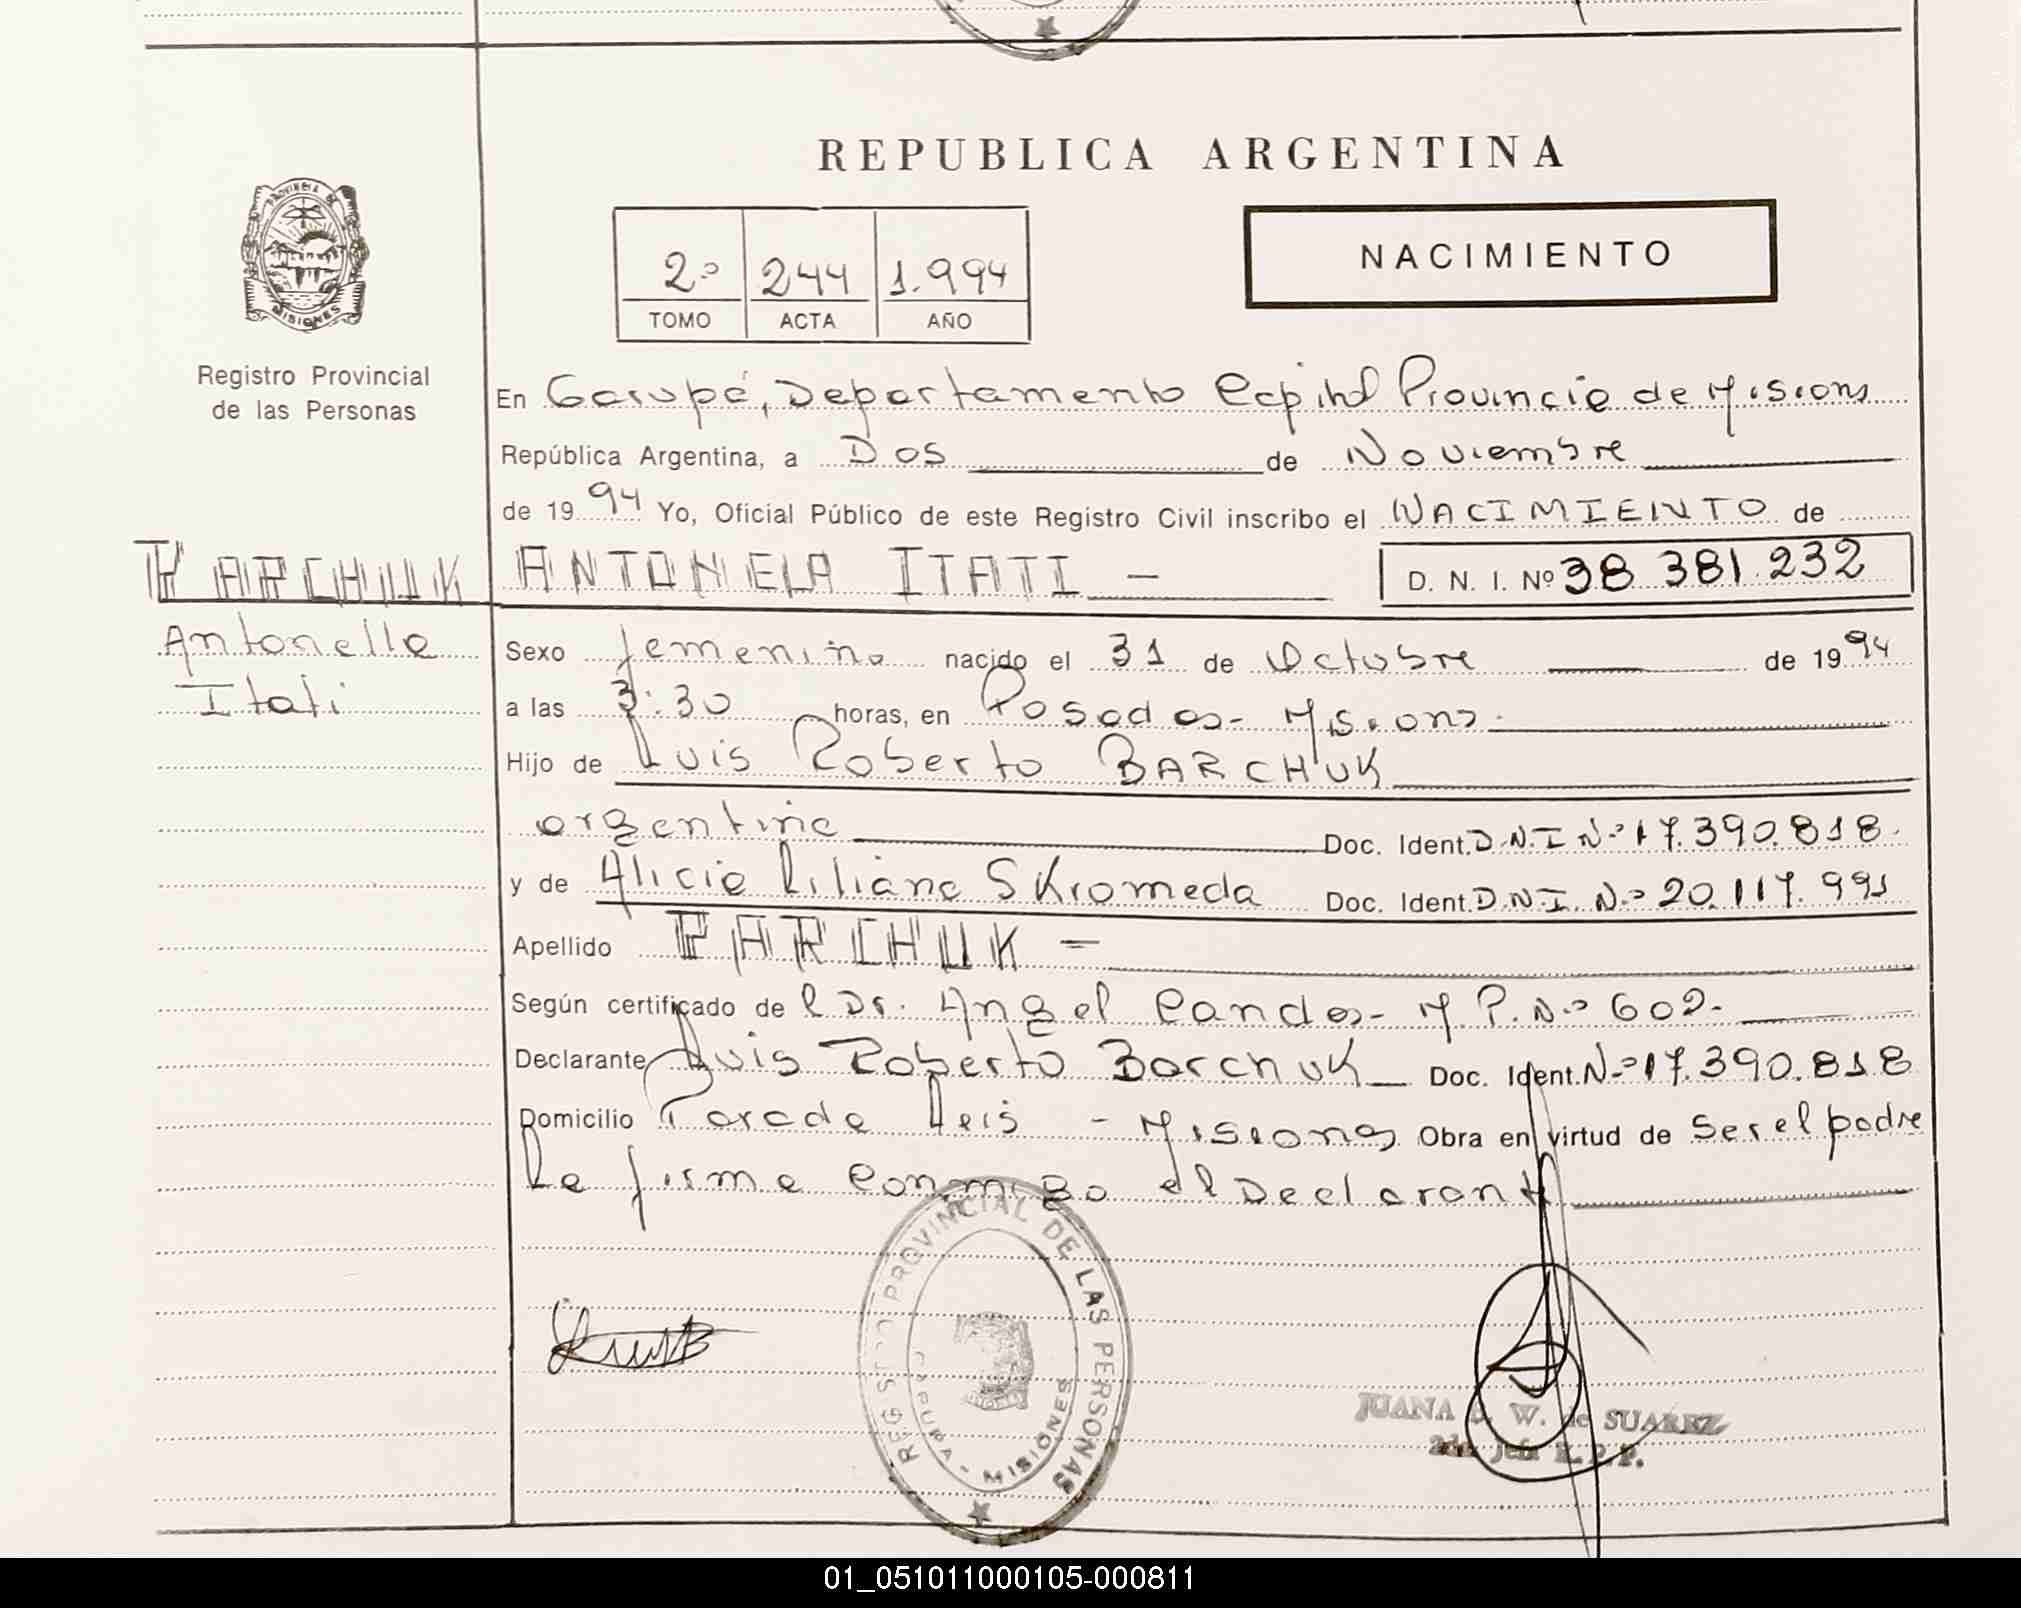 REPUBLICA ARGENTINA
PROVINCIA DE
MISIONES
Registro Provincial
de las Personas
2º 244 1.994
TOMO ACTA AÑO
NACIMIENTO
En Garupá, Departamento Capital Provincia de Misiones
República Argentina, a Dos de Noviembre
de 1994 Yo, Oficial Público de este Registro Civil inscribo el NACIMIENTO de
BARCHUK ANTONELA ITATI - D. N. I. Nº 38 381.232
Antonella
Itati
Sexo femenino nacido el 31 de Octubre de 1994
a las 3:30 horas, en Posadas - Misiones.
Hijo de Luis Roberto BARCHUK
argentino Doc. Ident. D.N.I Nº 17.390.818.
y de Alicia Liliana Skromeda Doc. Ident. D.N.I. Nº 20.117.991
Apellido BARCHUK -
Según certificado de l Dr. Angel M.P.Nº 602.
Declarante Luis Roberto Barchuk Doc. Ident. Nº 17.390.818
Domicilio Parada Leis - Misiones Obra en virtud de Ser el padre
Le firma conmigo el Declarante
REGISTRO PROVINCIAL DE LAS PERSONAS
GARUPA - MISIONES
JUANA W. de SUAREZ
2da Jefa R.P.P.
01_051011000105-000811